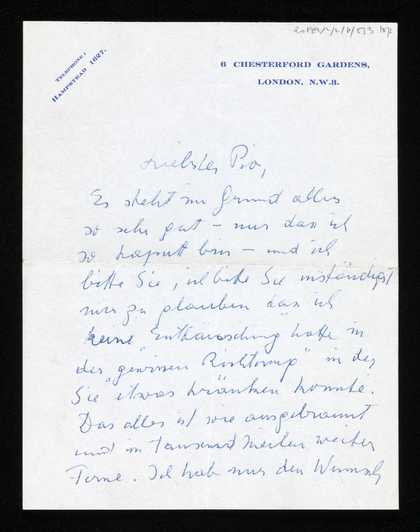 TELEPHONE:
HAMPSTEAD 1627.
6 CHESTERFORD GARDENS,
LONDON, N.W.3.
Liebster Pio,
Es steht im Grund alles
so sehr gut – nur dass ich
so kaputt bin – und ich
bitte Sie, ich bitte Sie inständigst
mir zu glauben dass ich
keine "Enttäuschung hatte in
der "gewissen Richtung" in der
Sie etwas kränken konnte.
Das alles ist wie ausgebrannt
und in tausend Meilen weiter
Ferne. Ich hab nur den Wunsch